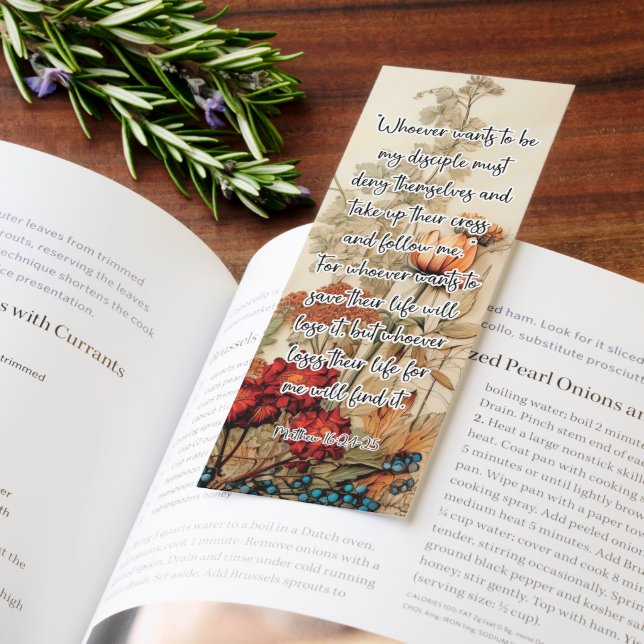 uter leaves from trimmed
routs, reserving the leaves
technique shortens the cook
ce presentation.
s with Currants
trimmed
the
high
"Whoever wants to be
my disciple must
deny themselves and
take up their cross
and follow me."
For whoever wants to
save their life will
lose it, but whoever
loses their life for
me will find it.
Matthew 16:24-25
Brussels
teaspoon
teaspoons honey
3 quarts water to a boil in a Dutch oven.
onions; cook 1 minute. Remove onions with a
spoon. Drain and rinse under cold running
drain. Set aside. Add Brussels sprouts to
ed ham. Look for it sliced
collo, substitute prosciutt
zed Pearl Onions an
boiling water; boil 2 minut
Drain. Pinch stem end of ea
2. Heat a large nonstick skill
heat. Coat pan with cooking
5 minutes or until lightly brow
pan. Wipe pan with a paper to
cooking spray. Add peeled onion
medium heat 5 minutes. Add Bru
¼ cup water; cover and cook 8 mi
tender, stirring occasionally. Sprin
ground black pepper and kosher sa
honey; stir gently. Top with ham.
(serving size: ½ cup).
CALORIES 100; FAT 2g (sat 0.9g, mono
CHOL 4mg; IRON 1mg; SODIUM